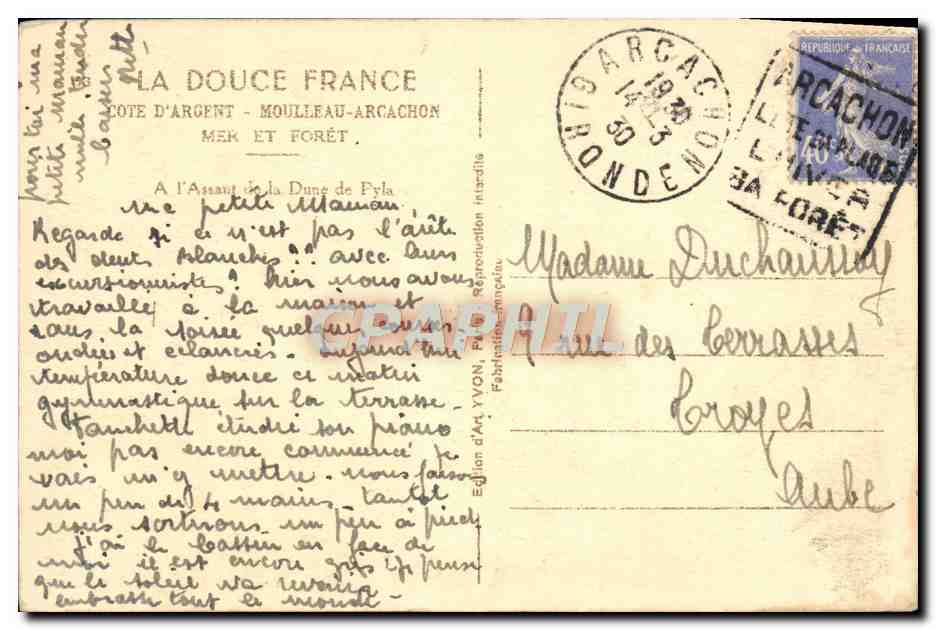 LA DOUCE FRANCE
COTE D'ARGENT - MOULLEAU-ARCACHON
MER ET FORÊT
A l'Assaut de la Dune de Pyla
pour toi ma
petite Maman
mille tendres
baisers
Ma petite Maman
Regarde si ce n'est pas l'arête
des dents blanches!! avec leurs
excursionnistes! hier nous avons
travaillé à la maison et
dans la soirée quelques courses.
ondées et éclaircies. aujourd'hui
température douce ce matin
gymnastique sur la terrasse.
étudie son piano
moi pas encore commencé je
vais m'y mettre. nous faisons
un peu de 4 mains, tantôt
nous sortirons un peu à pied
j'ai le bassin en face de
moi il est encore gris je pense
que le soleil va revenir
embrasse tout le monde -
Edition d'Art YVON, Paris. Reproduction interdite
Fabrication française
ARCACHON
19 30
14 - 3
30
GIRONDE
REPUBLIQUE FRANÇAISE
40
ARCACHON
L'ETE SA PLAGE
L'HIVER
SA FORÊT
Madame Duchaussoy
9 rue des Terrasses
Troyes
Aube
CPAPHIL